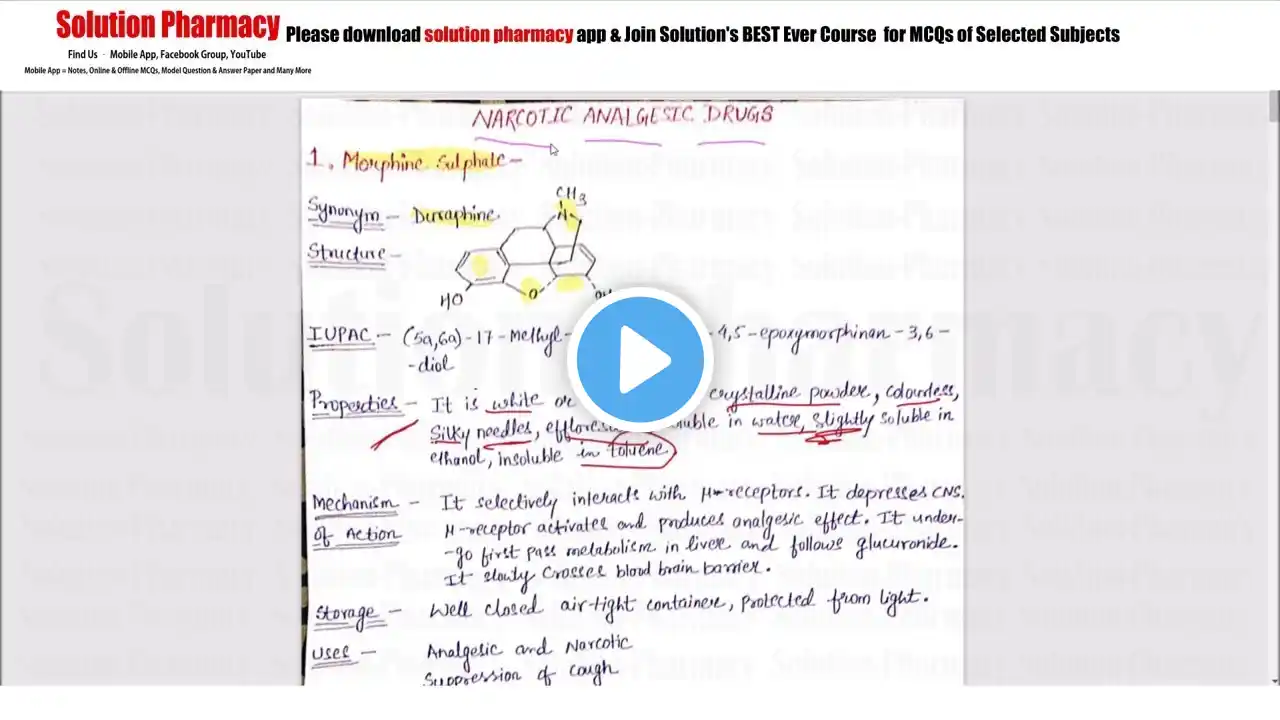 Solution Pharmacy
Please download solution pharmacy app & Join Solution's BEST Ever Course for MCQs of Selected Subjects
Find Us - Mobile App, Facebook Group, YouTube
Mobile App = Notes, Online & Offline MCQs, Model Question & Answer Paper and Many More
NARCOTIC ANALGESIC DRUGS
1. Morphine Sulphate -
Synonym - Duraphine
Structure -
CH3
N
HO
O
IUPAC - (5a,6a)-17-Methyl- -4,5-epoxymorphinan-3,6-
-diol
Properties - It is white or crystalline powder, colourless,
Silky needles, in water, slightly soluble in
ethanol, insoluble in toluene
Mechanism - It selectively interacts with μ-receptors. It depresses CNS.
of Action μ-receptor activates and produces analgesic effect. It under-
-go first pass metabolism in liver and follows glucuronide.
It slowly crosses blood brain barrier.
Storage - Well closed air-tight container, protected from light.
Uses - Analgesic and Narcotic
Suppression of cough